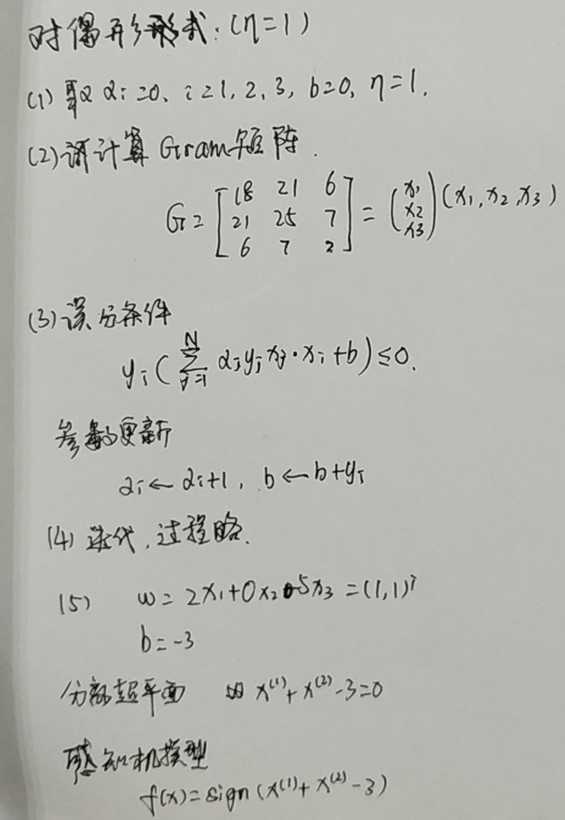 对偶形形式：(η=1)
(1) 取 αi=0, i=1,2,3, b=0, η=1.
(2) 计算 Gram 矩阵.
G = [18 21 6
21 25 7
6 7 2] = (x1
x2
x3) (x1, x2, x3)
(3) 误分条件
yi ( Σ_{j=1}^{N} αj yj xj · xi + b ) ≤ 0.
参数更新
αi ← αi+1, b ← b+yi
(4) 迭代, 过程略.
(5) w = 2x1+0x2-5x3 = (1,1)T
b = -3
分离超平面 x^(1)+x^(2)-3=0
感知机模型
f(x) = sign (x^(1)+x^(2)-3)